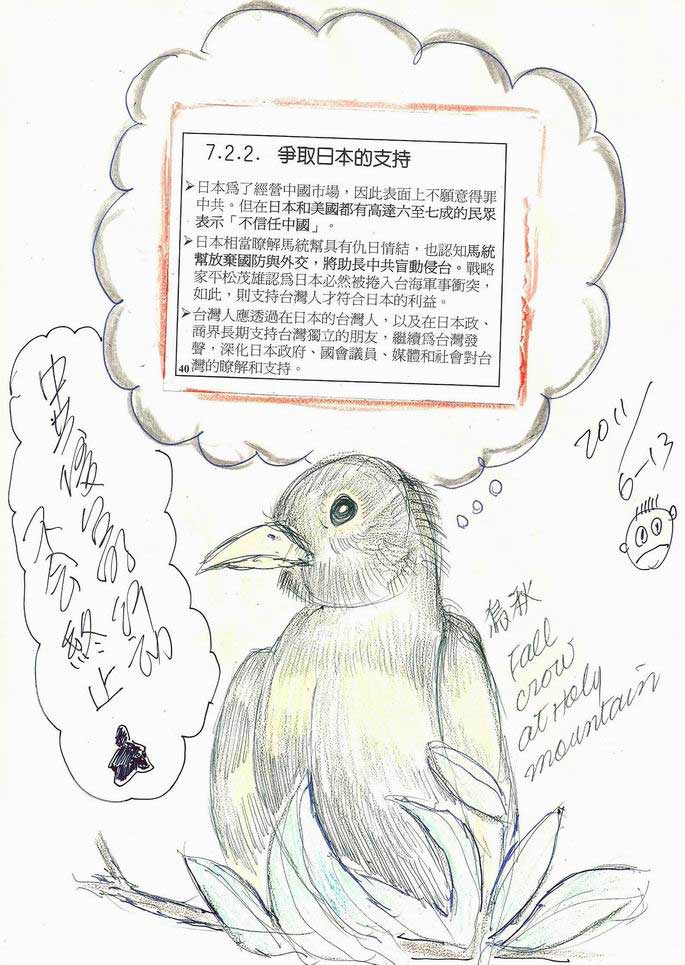 7.2.2. 爭取日本的支持
➢日本為了經營中國市場，因此表面上不願意得罪
中共。但在日本和美國都有高達六至七成的民眾
表示「不信任中國」。
➢日本相當瞭解馬統幫具有仇日情結，也認知馬統
幫放棄國防與外交，將助長中共盲動侵台。戰略
家平松茂雄認為日本必然被捲入台海軍事衝突，
如此，則支持台灣人才符合日本的利益。
➢台灣人應透過在日本的台灣人，以及在日本政、
商界長期支持台灣獨立的朋友，繼續為台灣發
聲，深化日本政府、國會議員、媒體和社會對台
灣的瞭解和支持。
40
中共侵
不會終止
2011/
6-13
烏秋
Fall
crow
at Holy
mountain